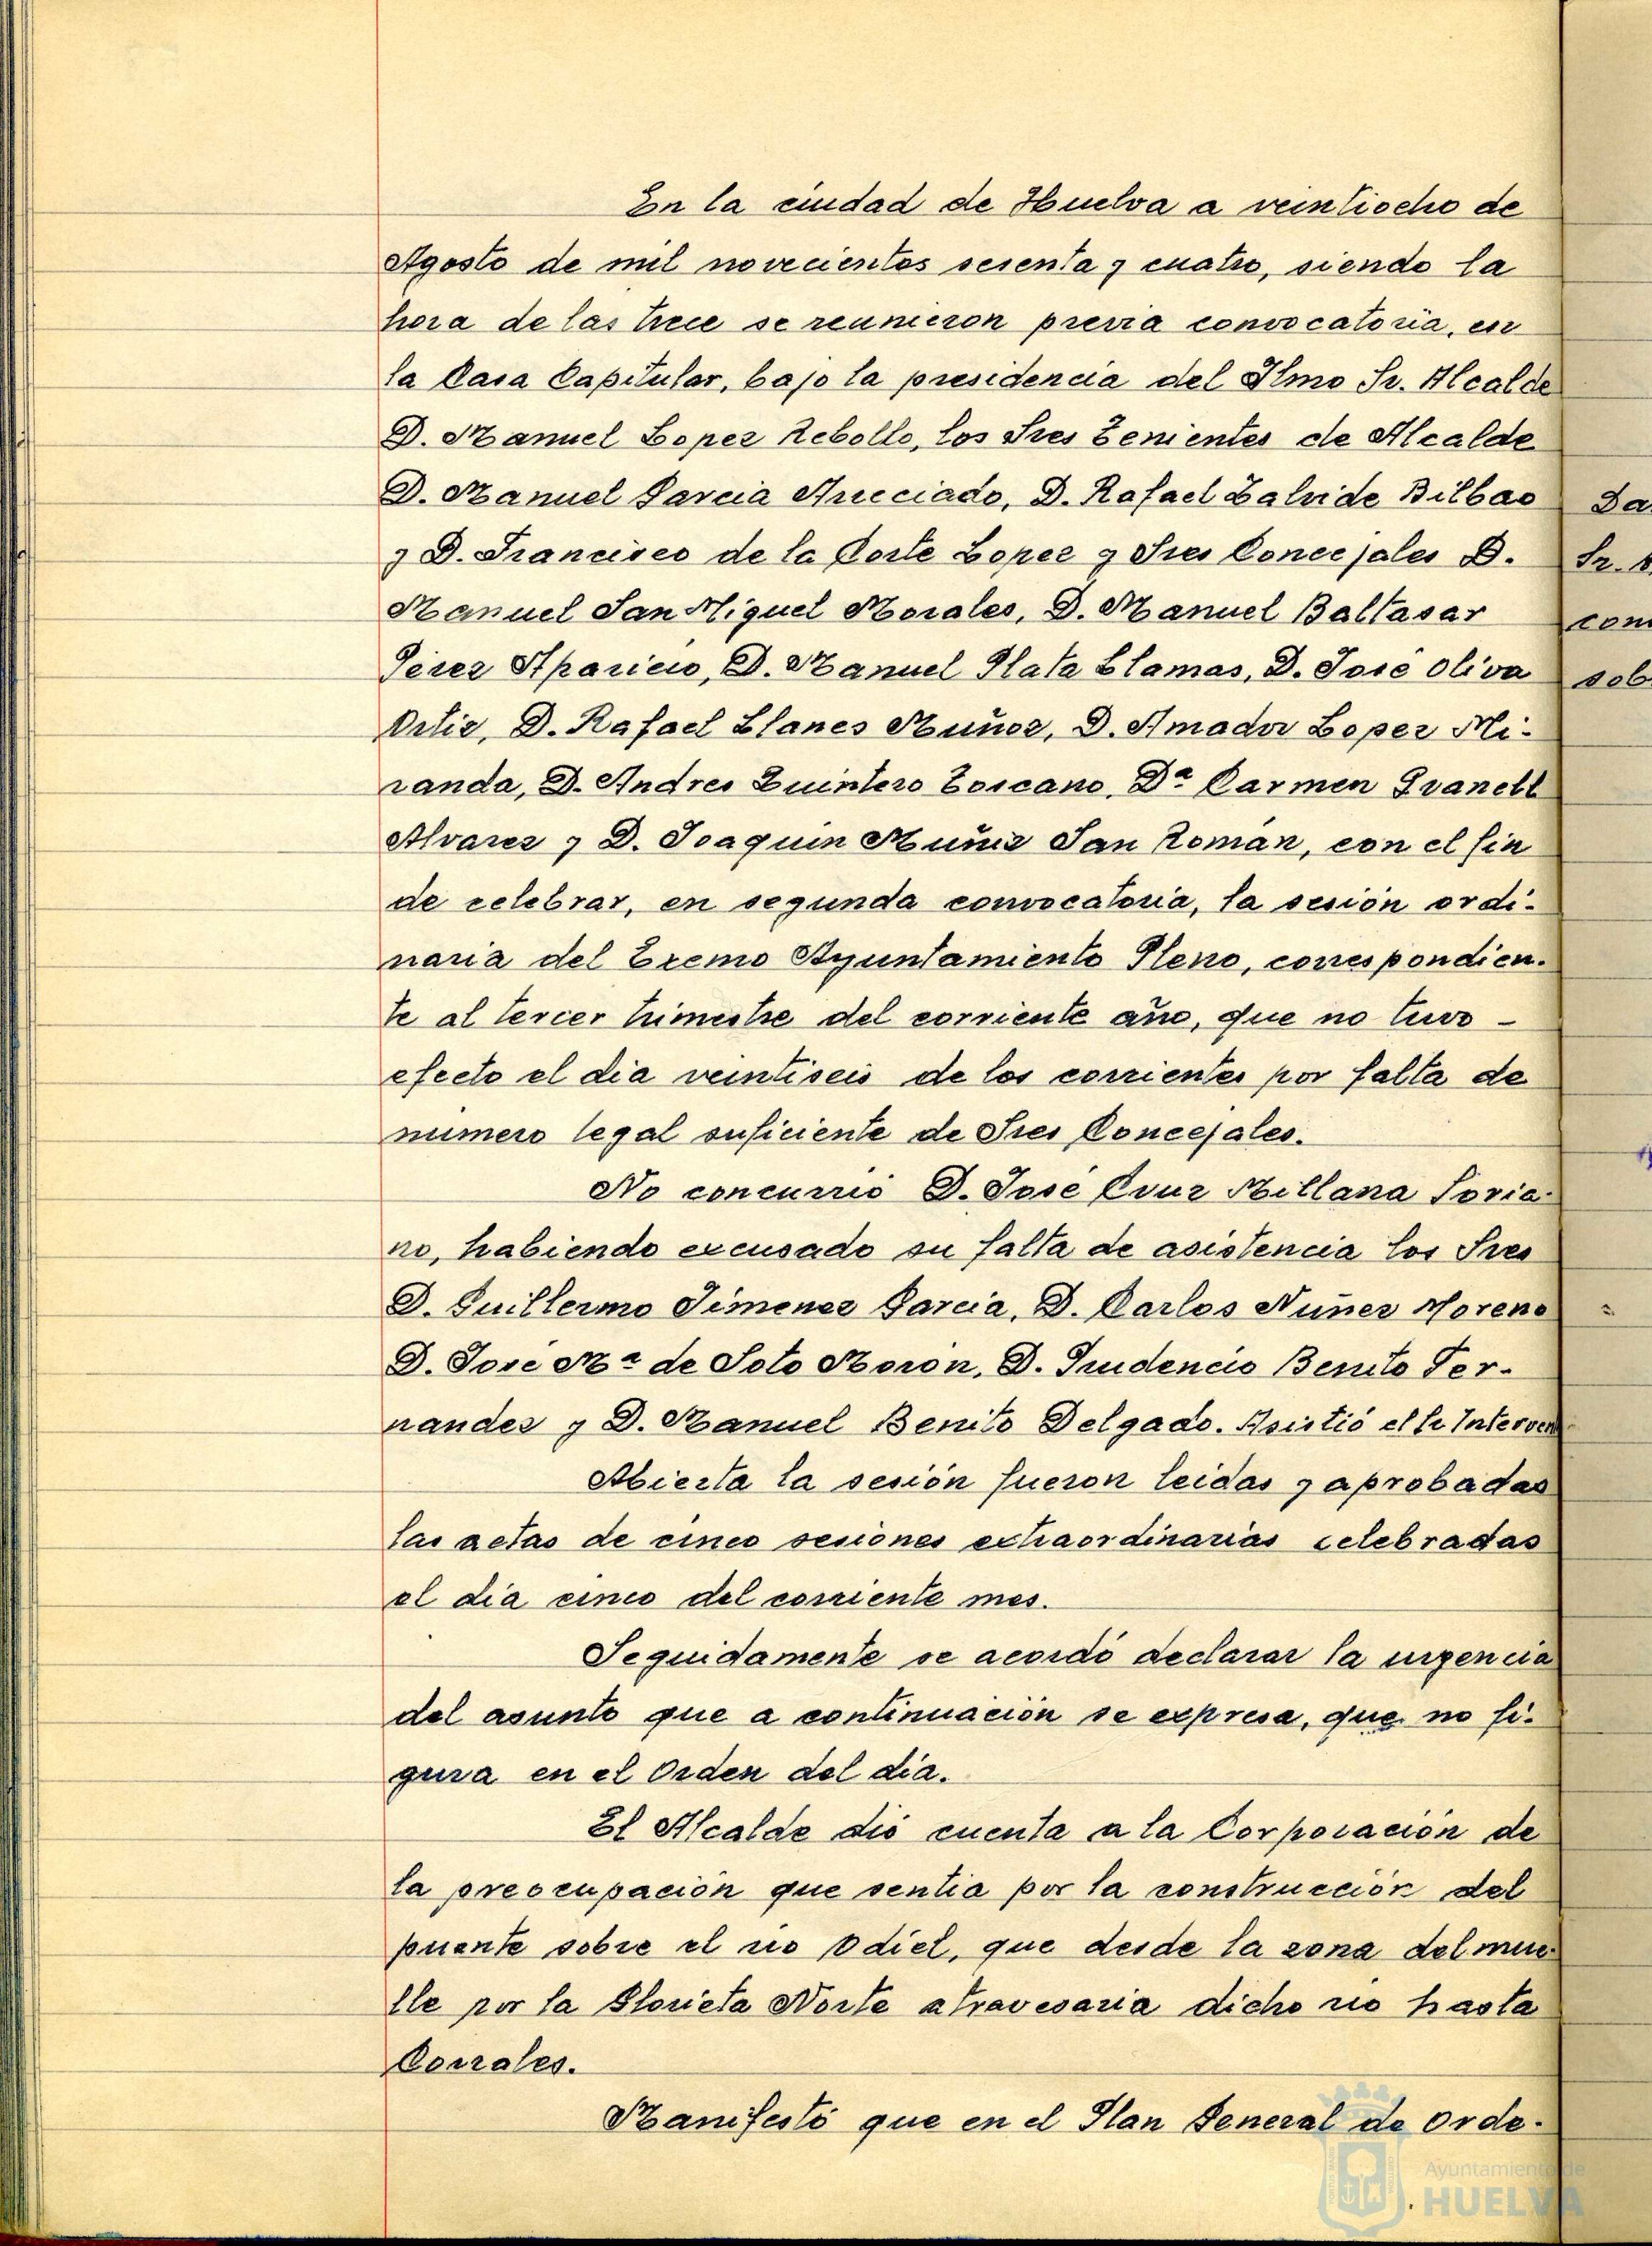 En la ciudad de Huelva a veintiocho de
Agosto de mil novecientos sesenta y cuatro, siendo la
hora de las trece se reunieron previa convocatoria, en
la Casa Capitular, bajo la presidencia del Ilmo Sr. Alcalde
D. Manuel Lopez Rebollo, los Sres Tenientes de Alcalde
D. Manuel Garcia Arreciado, D. Rafael Zalvide Bilbao
y D. Francisco de la Corte Lopez y Sres Concejales D.
Manuel San Miguel Morales, D. Manuel Baltasar
Perez Aparicio, D. Manuel Plata Llamas, D. José Oliva
Ortiz, D. Rafael Llanes Muñoz, D. Amador Lopez Mi-
randa, D. Andres Quintero Toscano, Dª Carmen Gvanell
Alvarez y D. Joaquin Muñiz San Román, con el fin
de celebrar, en segunda convocatoria, la sesión ordi-
naria del Excmo Ayuntamiento Pleno, correspondien-
te al tercer trimestre del corriente año, que no tuvo -
efecto el dia veintiseis de los corrientes por falta de
numero legal suficiente de Sres Concejales.
No concurrió D. José Cruz Millana Soria-
no, habiendo excusado su falta de asistencia los Sres
D. Guillermo Jimenez Garcia, D. Carlos Nuñez Moreno
D. Jose Mª de Soto Moron, D. Prudencio Benito Fer-
nandez y D. Manuel Benito Delgado. Asistió el Sr Interven
Abierta la sesión fueron leidas y aprobadas
las actas de cinco sesiones extraordinarias celebradas
el dia cinco del corriente mes.
Seguidamente se acordó declarar la urgencia
del asunto que a continuación se expresa, que no fi-
gura en el Orden del dia.
El Alcalde dió cuenta a la Corporación de
la preocupación que sentia por la construcción del
puente sobre el rio Odiel, que desde la zona del mue-
lle por la Glorieta Norte atravesaria dicho rio hasta
Corrales.
Manifestó que en el Plan General de Orde-
Ayuntamiento de
HUELVA